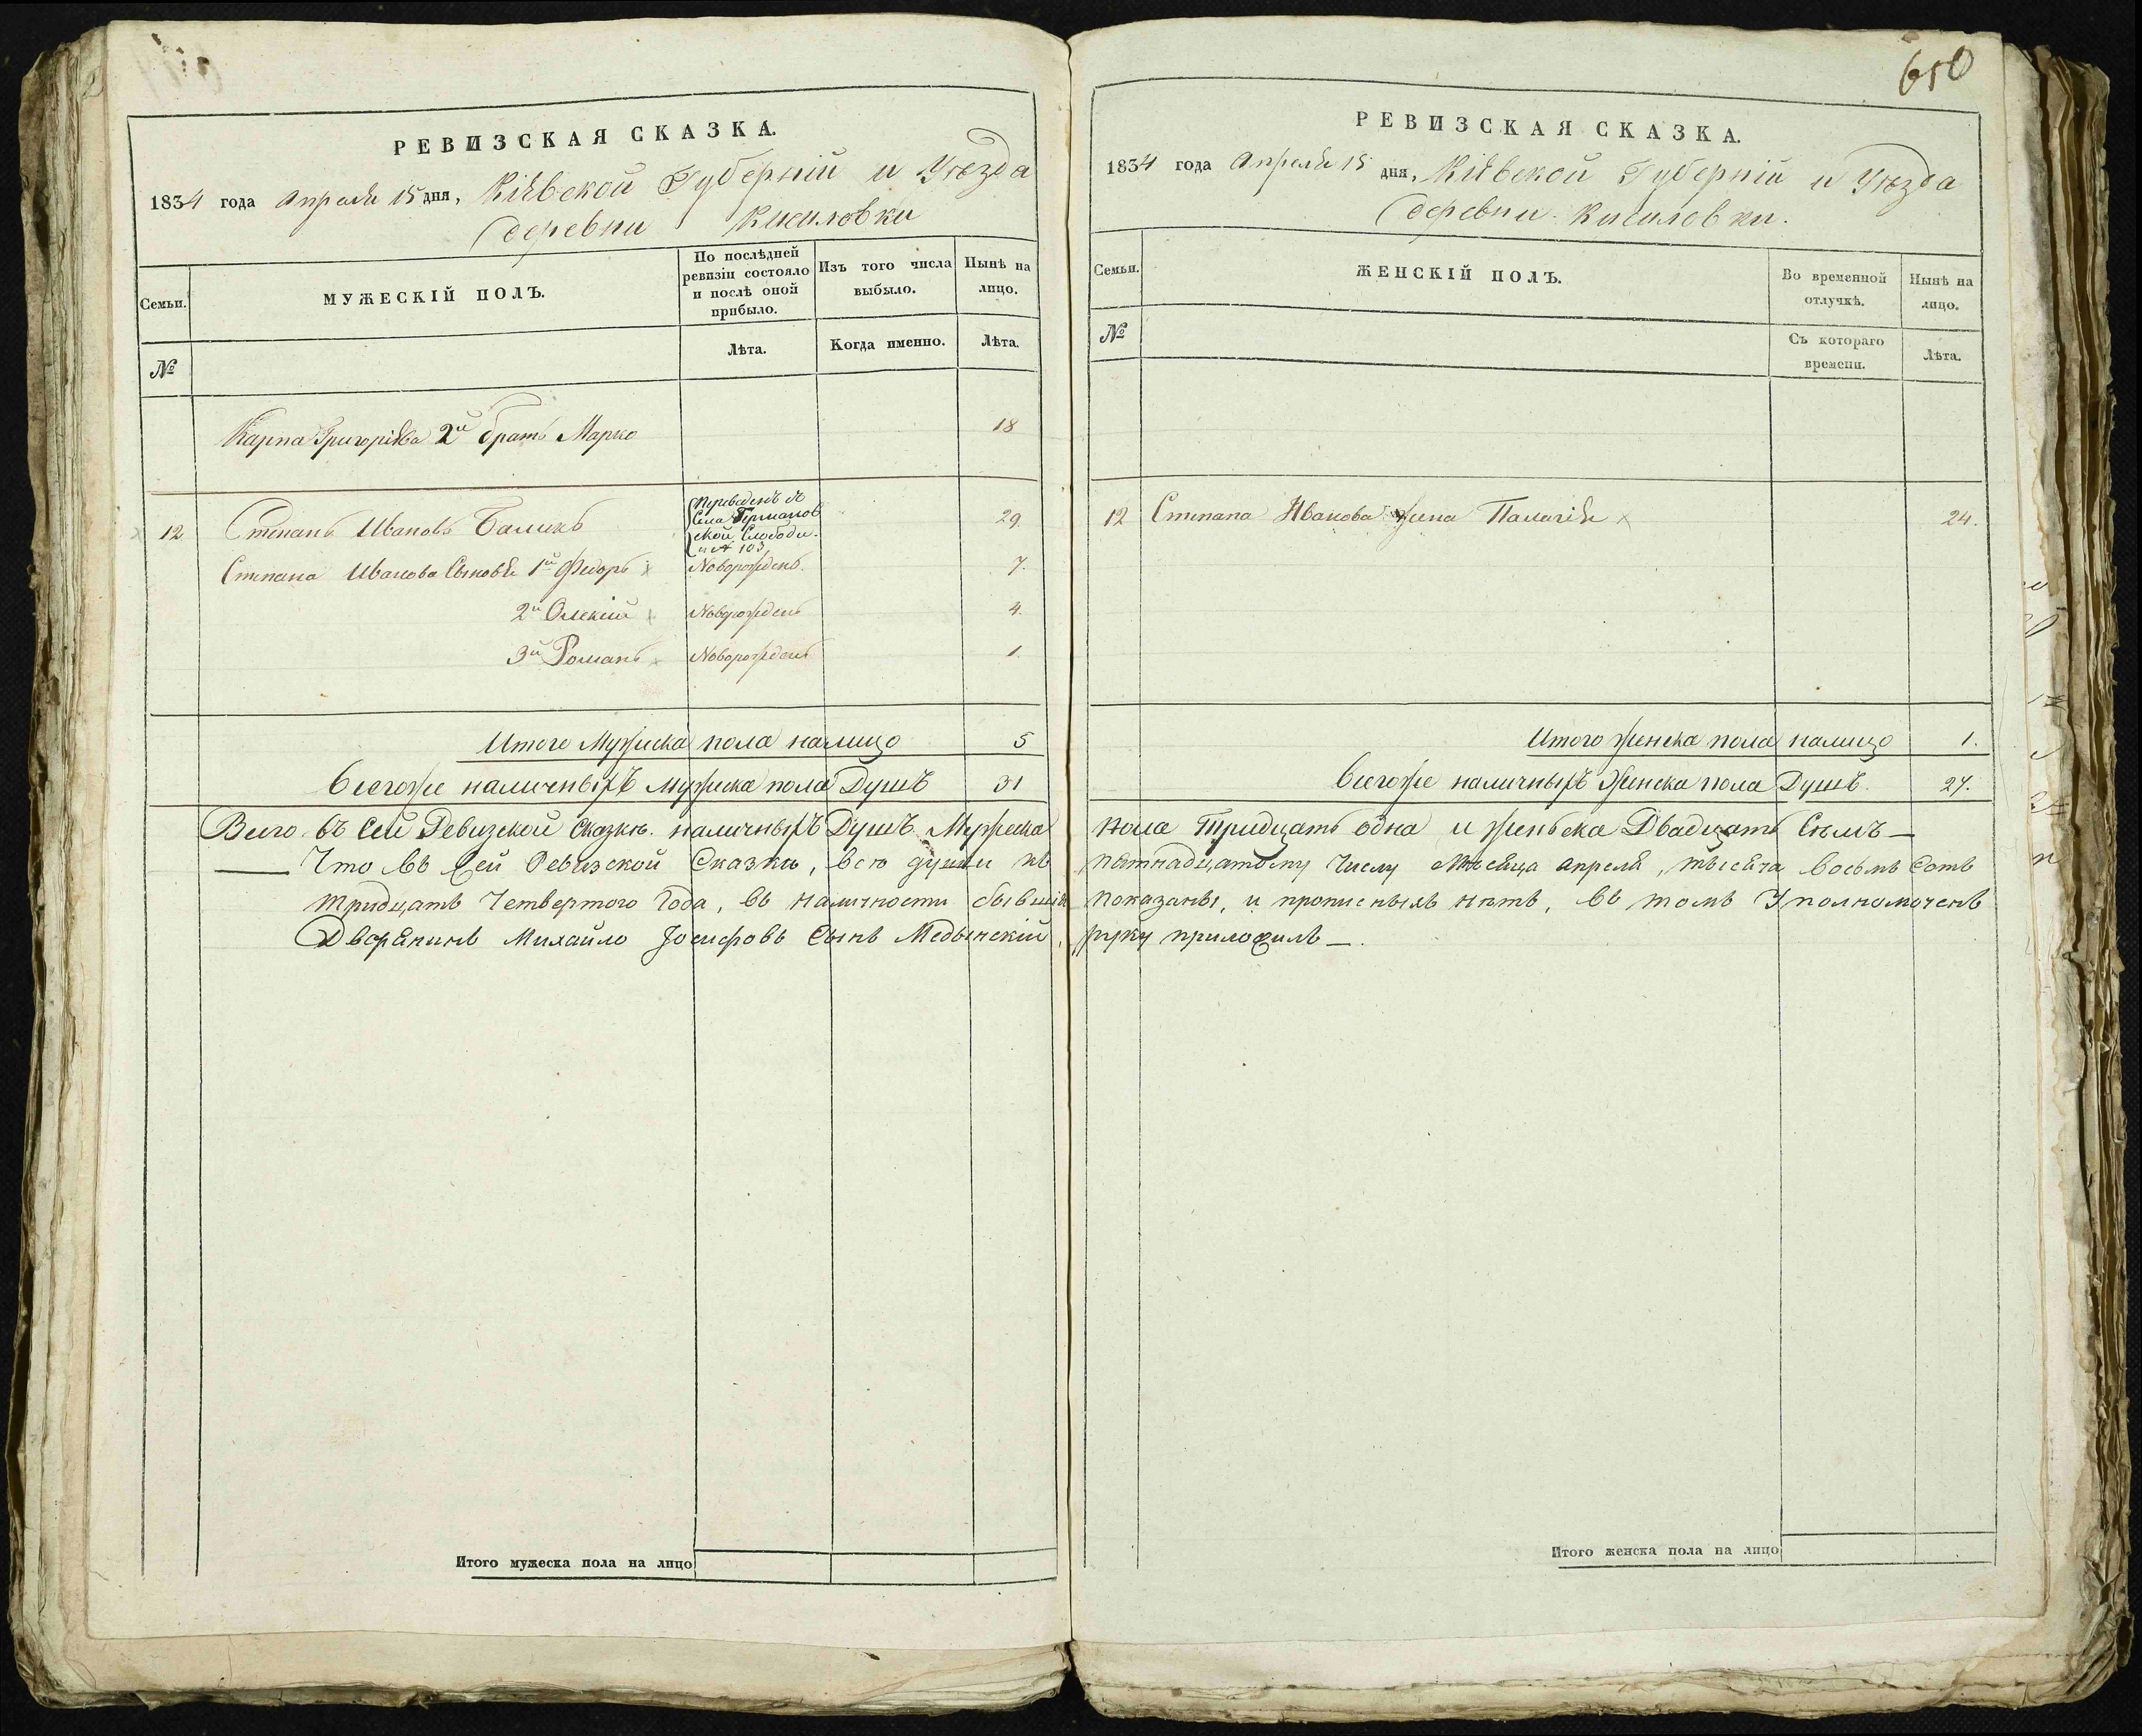 650
РЕВИЗСКАЯ СКАЗКА.
1834 года Апреля 15 дня, Кіевской Губерніи и Уѣзда
деревни Кисиловки
Семьи.
МУЖЕСКІЙ ПОЛЪ.
По послѣдней
ревизіи состояло
и послѣ оной
прибыло.
Изъ того числа
выбыло.
Нынѣ на
лицо.
№
Лѣта.
Когда именно.
Лѣта.
Карпа Григоріева 2й братъ Марко 18
12 Степанъ Ивановъ Баликъ 29.
Переведенъ съ
села Германов
ской Слободы.
и № 103
Степана Иванова Сыновья 1й Федоръ Новорожденъ. 7.
2й Олексій Новорожденъ 4.
3й Романъ Новорожденъ 1.
Итого Мужеска пола налицо 5
Всегоже наличныхъ мужеска пола Душъ 31
РЕВИЗСКАЯ СКАЗКА.
1834 года Апреля 15 дня, Кіевской Губерніи и Уѣзда
деревни Кисиловки.
Семьи.
ЖЕНСКІЙ ПОЛЪ.
Во временной
отлучкѣ.
Нынѣ на
лицо.
№
Съ котораго
времени.
Лѣта.
12 Степана Иванова жена Палагія 24.
Итого женска пола налицо 1.
Всегоже наличныхъ Женска пола Душъ. 27.
Всего въ сей Ревизской Сказкѣ. наличныхъ Душъ Мужеска пола Тридцать одна и женьска Двадцать Сѣмъ —
— Что въ сей Ревизской Сказкѣ, всѣ души къ пятнадцатому числу Мѣсяца апреля, тысяча восьмъ сотъ
тридцать Четвертого Года, въ наличности бывшія показаны, и прописныхъ нѣтъ, въ томъ Уполномоченъ
Дворянинъ Михайло Іосифовъ Сынъ Медынскій, руку приложилъ —.
Итого мужеска пола на лицо
Итого женска пола на лицо